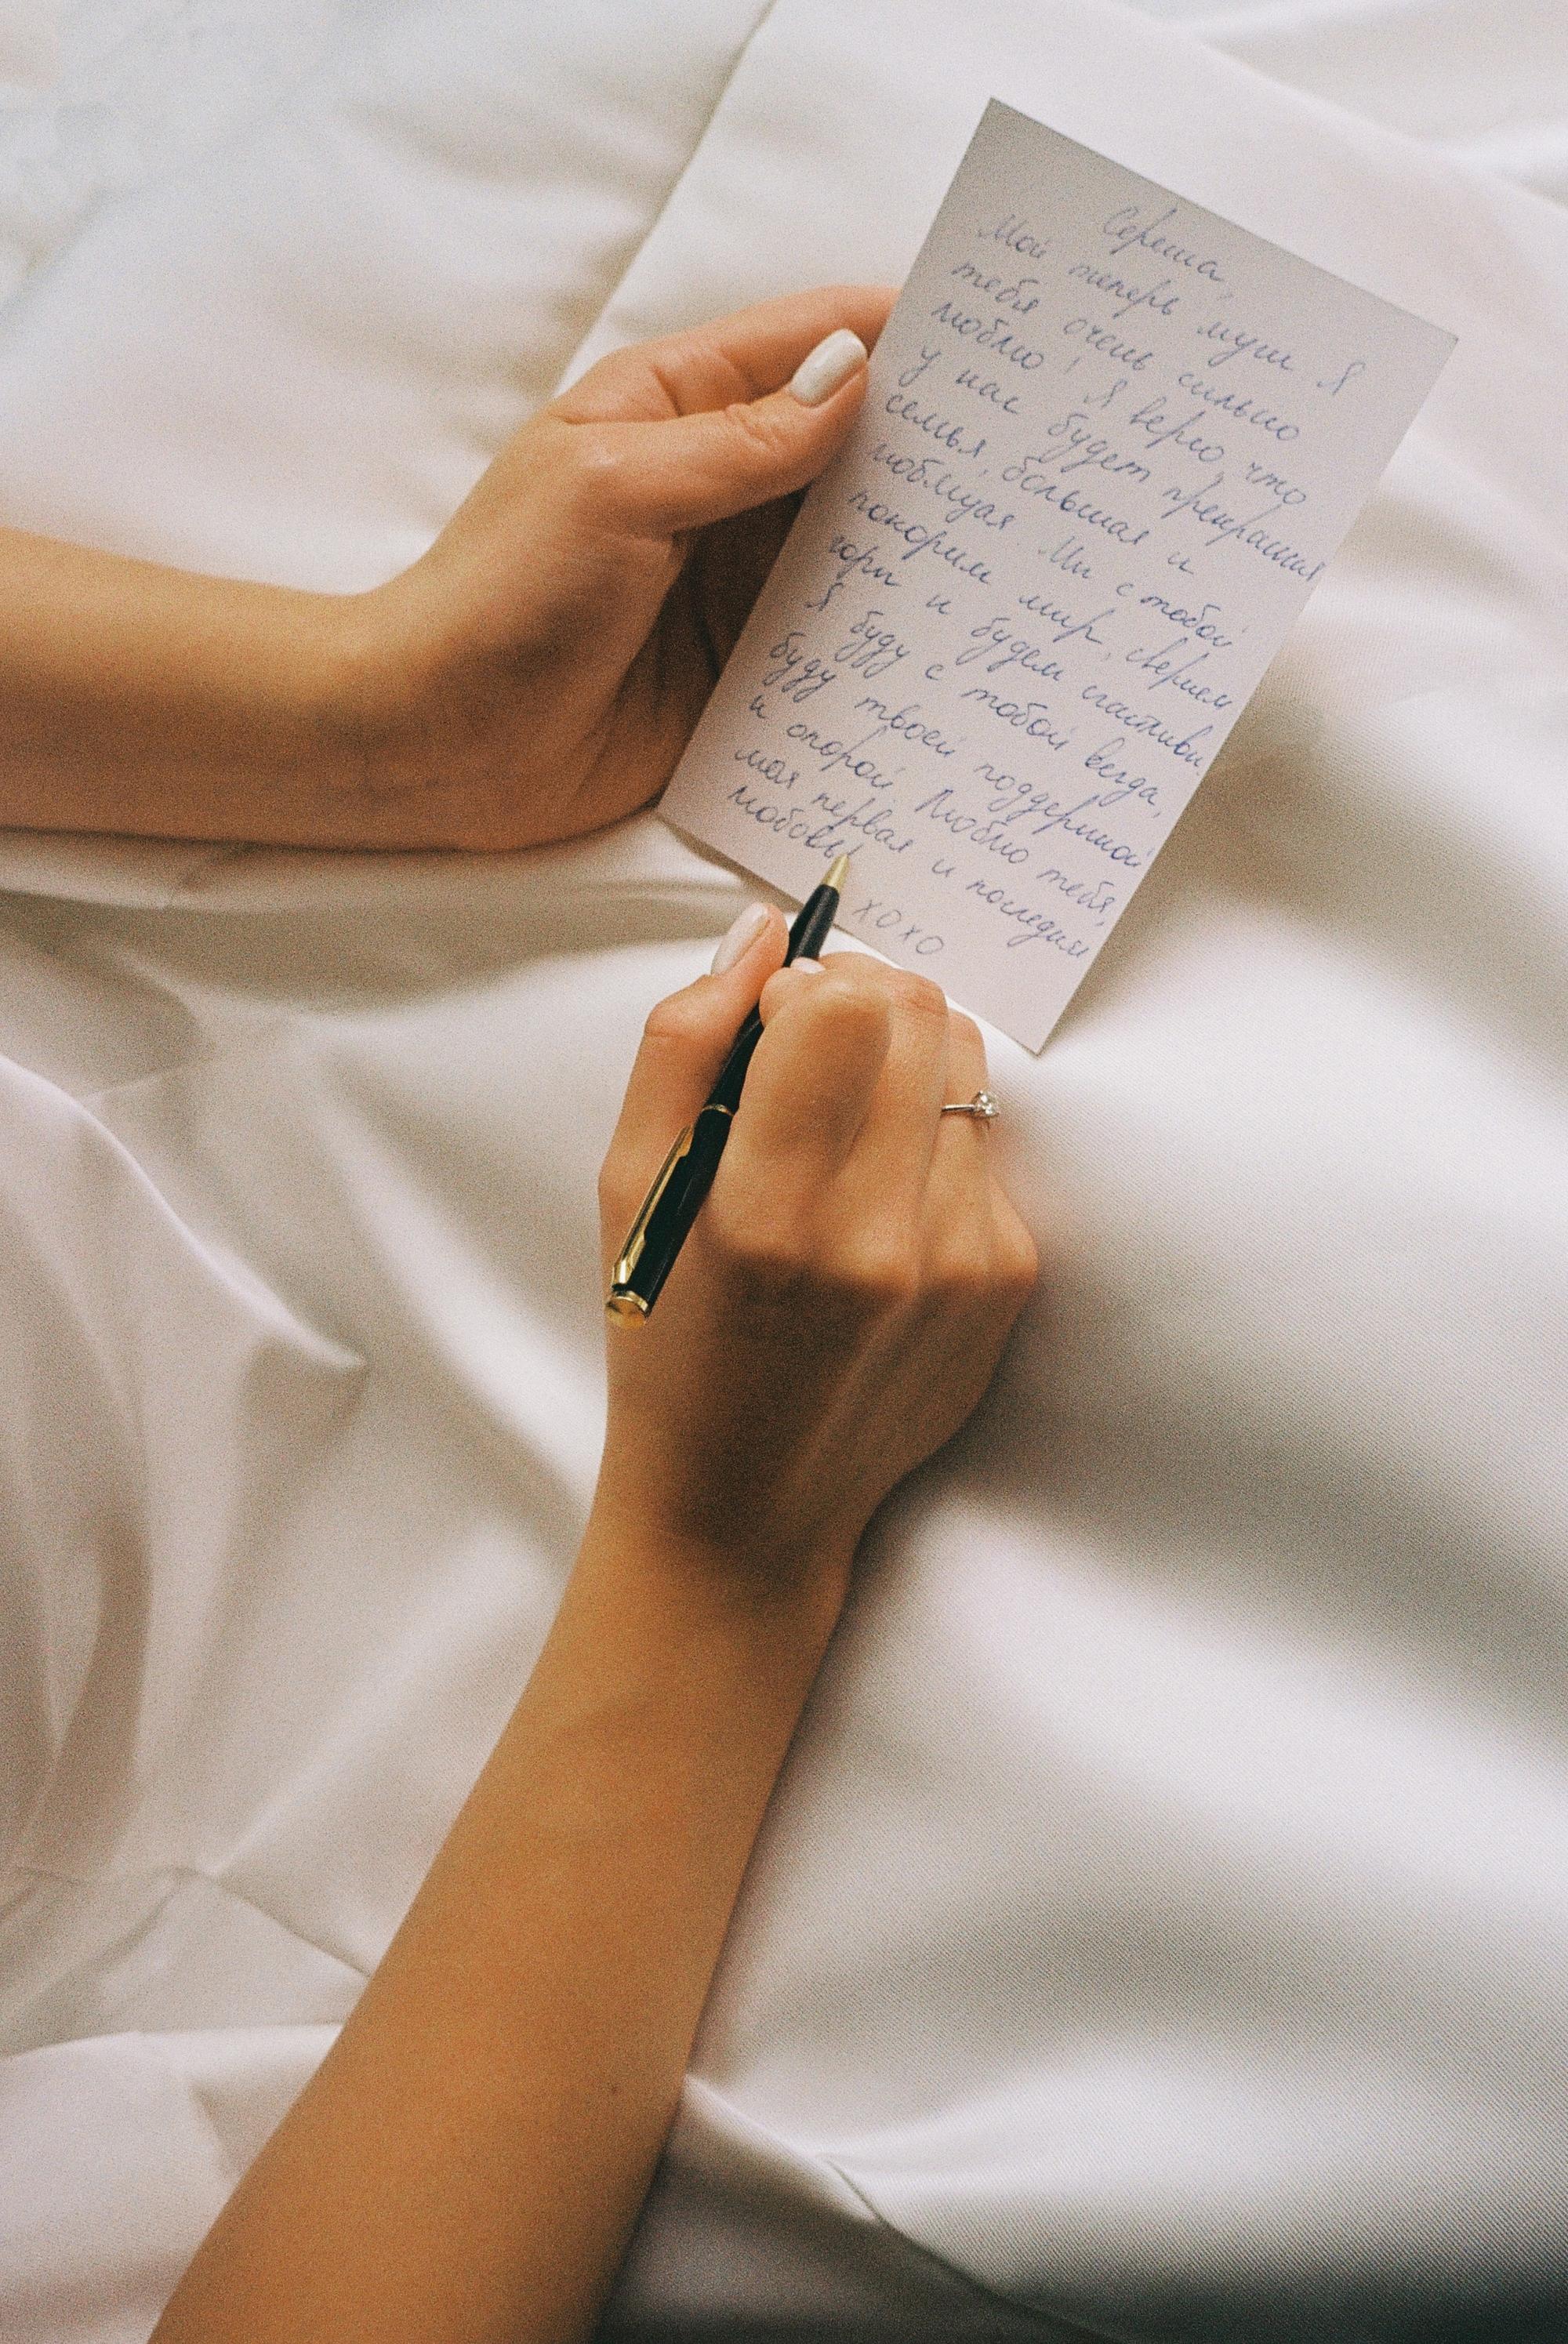 Сережа,
Мой теперь муж. Я
тебя очень сильно
люблю! Я верю, что
у нас будет прекрасная
семья, большая и
любящая. Мы с тобой
покорим мир, свернем
горы и будем счастливы.
Я буду с тобой всегда,
буду твоей поддержкой
и опорой. Люблю тебя,
моя первая и последняя
любовь!
хохо